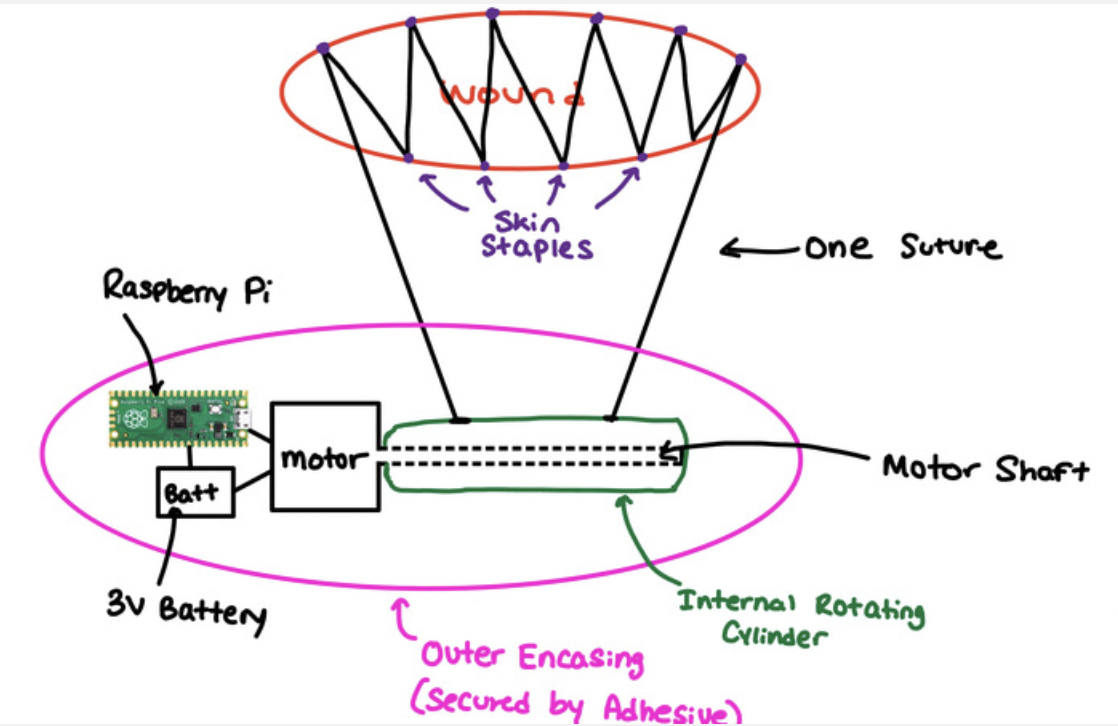 wound
Skin
Staples
One Suture
Raspberry Pi
Motor
Batt
Motor Shaft
3V Battery
Internal Rotating
Cylinder
Outer Encasing
(Secured by Adhesive)